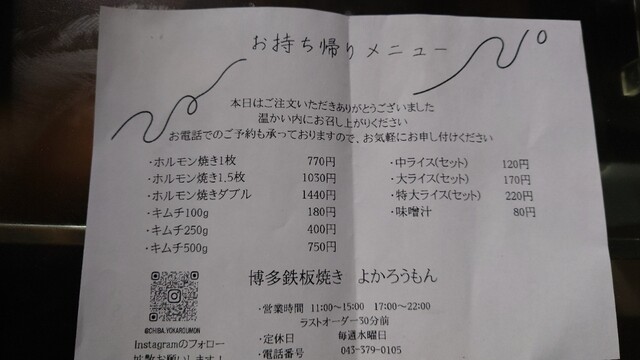 お持ち帰りメニュー
本日はご注文いただきありがとうございました
温かい内にお召し上がりください
お電話でのご予約も承っておりますので、お気軽にお申し付けください
・ホルモン焼き1枚 770円
・ホルモン焼き1.5枚 1030円
・ホルモン焼きダブル 1440円
・キムチ100g 180円
・キムチ250g 400円
・キムチ500g 750円
・中ライス(セット) 120円
・大ライス(セット) 170円
・特大ライス(セット) 220円
・味噌汁 80円
博多鉄板焼き よかろうもん
・営業時間 11:00～15:00 17:00～22:00
ラストオーダー30分前
・定休日 毎週水曜日
・電話番号 043-379-0105
@CHIBA.YOKAROUMON
Instagramのフォロー
拡散お願いします！